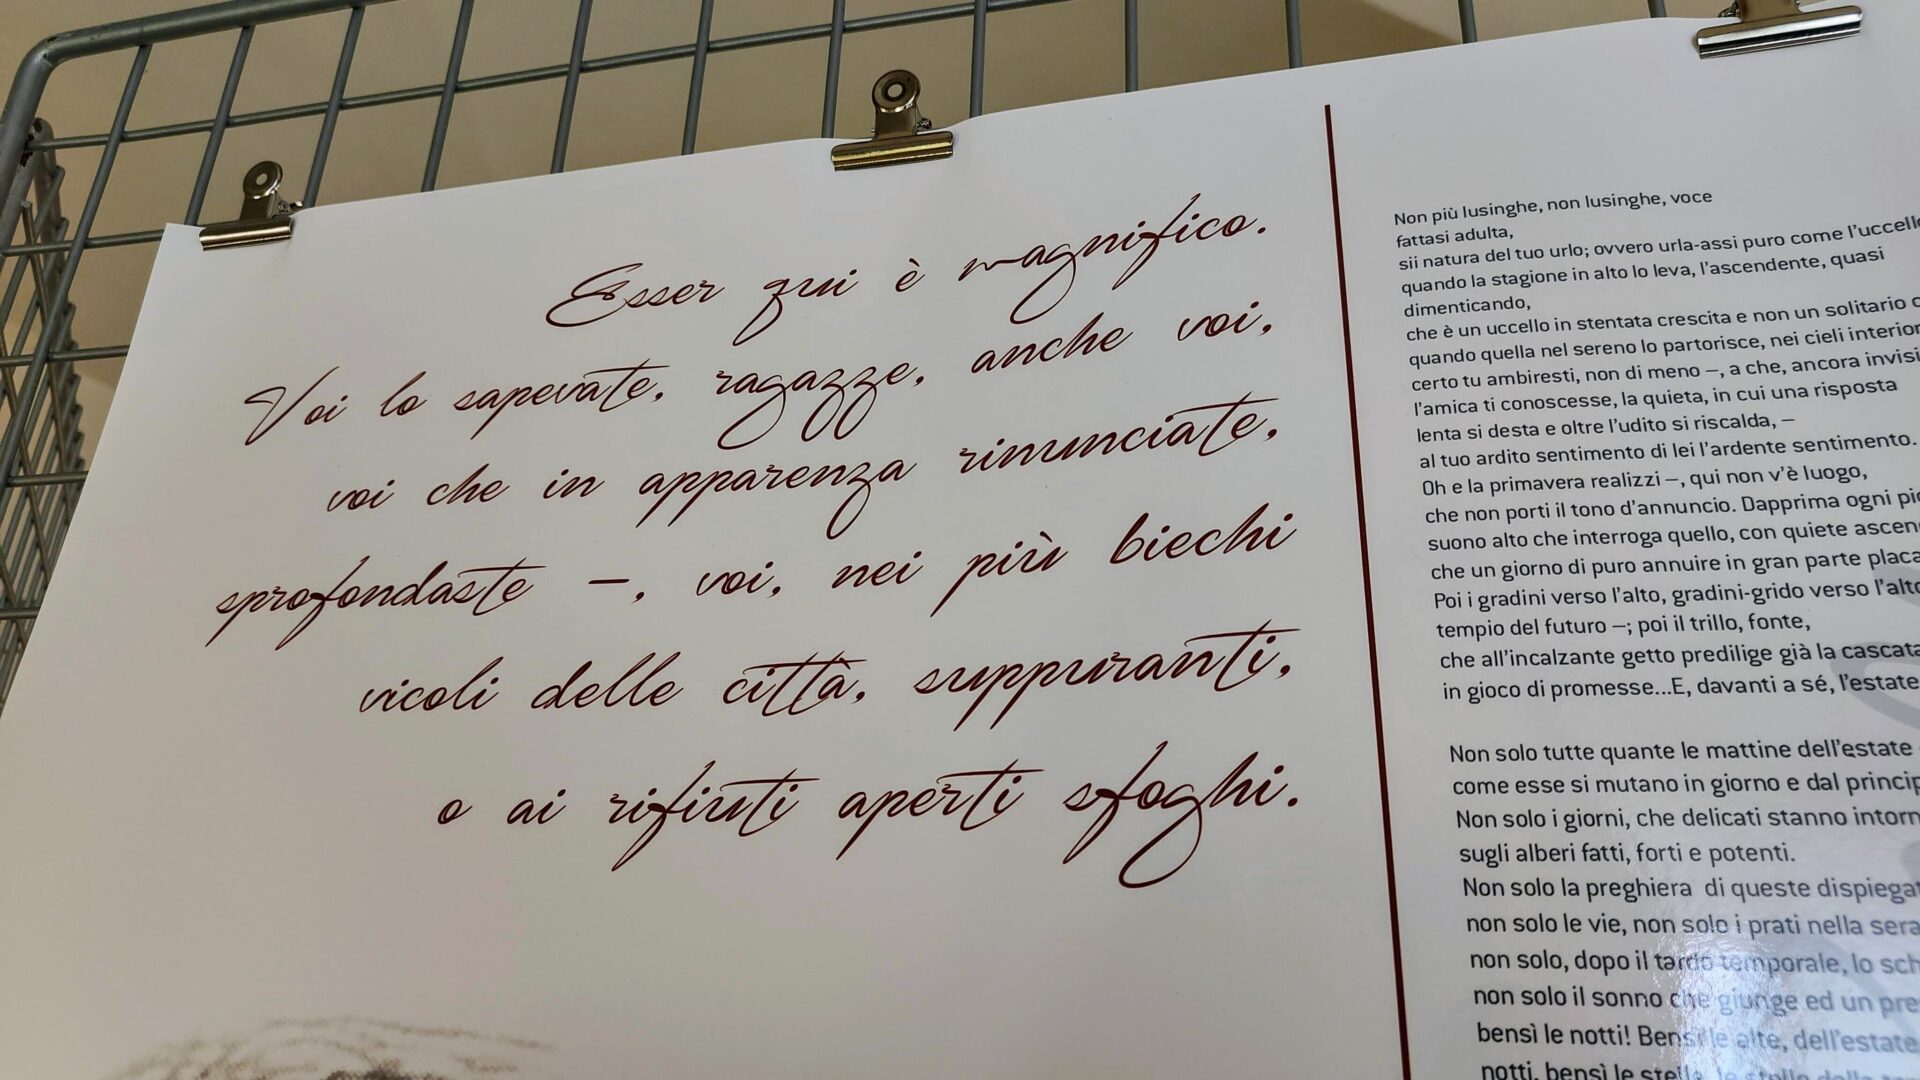 Esser qui è magnifico.
Voi lo sapevate, ragazze, anche voi,
voi che in apparenza rinunciate,
sprofondaste –, voi, nei più biechi
vicoli delle città, suppuranti,
o ai rifiuti aperti sfoghi.
Non più lusinghe, non lusinghe, voce
fattasi adulta,
sii natura del tuo urlo; ovvero urla-assi puro come l'uccello
quando la stagione in alto lo leva, l'ascendente, quasi
dimenticando,
che è un uccello in stentata crescita e non un solitario
quando quella nel sereno lo partorisce, nei cieli
certo tu ambiresti, non di meno –, a che, ancora
l'amica ti conoscesse, la quieta, in cui una risposta
lenta si desta e oltre l'udito si riscalda, –
al tuo ardito sentimento di lei l'ardente sentimento.
Oh e la primavera realizzi –, qui non v'è luogo,
che non porti il tono d'annuncio. Dapprima ogni
suono alto che interroga quello, con quiete
che un giorno di puro annuire in gran parte
Poi i gradini verso l'alto, gradini-grido verso
tempio del futuro –; poi il trillo, fonte,
che all'incalzante getto predilige già la cascata
in gioco di promesse...E, davanti a sé, l'estate
Non solo tutte quante le mattine dell'estate
come esse si mutano in giorno e dal
Non solo i giorni, che delicati stanno
sugli alberi fatti, forti e potenti.
Non solo la preghiera di queste
non solo le vie, non solo i prati nella sera
non solo, dopo il tardo temporale, lo
non solo il sonno che giunge ed un
bensì le notti! Bensì le alte, dell'estate
notti, bensì le stelle, le stelle della